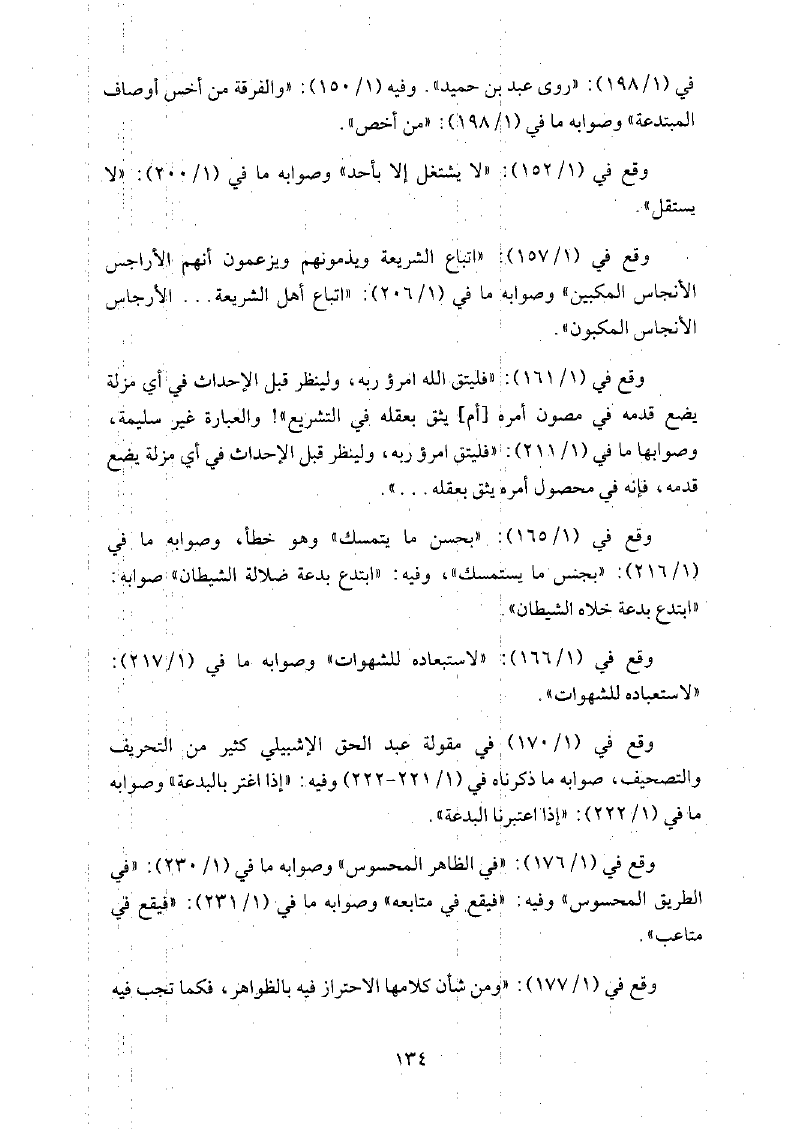 في (١/ ١٩٨): «روى عبد بن حميد». وفيه (١/ ١٥٠): «والفرقة من أخس أوصاف
المبتدعة» وصوابه ما في (١/ ١٩٨): «من أخص».
وقع في (١/ ١٥٢): «لا يشتغل إلا بأحد» وصوابه ما في (١/ ٢٠٠): «لا
يستقل».
وقع في (١/ ١٥٧): «اتباع الشريعة ويذمونهم ويزعمون أنهم الأراجس
الأنجاس المكبين» وصوابه ما في (١/ ٢٠٦): «اتباع أهل الشريعة... الأرجاس
الأنجاس المكبون».
وقع في (١/ ١٦١): «فليتق الله امرؤ ربه، ولينظر قبل الإحداث في أي مزلة
يضع قدمه في مصون أمره [أم] يثق بعقله في التشريع»! والعبارة غير سليمة،
وصوابها ما في (١/ ٢١١): «فليتق امرؤ ربه، ولينظر قبل الإحداث في أي مزلة يضع
قدمه، فإنه في محصول أمره يثق بعقله...».
وقع في (١/ ١٦٥): «بحسن ما يتمسك» وهو خطأ، وصوابه ما في
(١/ ٢١٦): «بجنس ما يستمسك»، وفيه: «ابتدع بدعة ضلالة الشيطان» صوابه:
«ابتدع بدعة خلاه الشيطان».
وقع في (١/ ١٦٦): «لاستبعاده للشهوات» وصوابه ما في (١/ ٢١٧):
«لاستعباده للشهوات».
وقع في (١/ ١٧٠) في مقولة عبد الحق الإشبيلي كثير من التحريف
والتصحيف، صوابه ما ذكرناه في (١/ ٢٢١-٢٢٢) وفيه: «إذا اغتر بالبدعة» وصوابه
ما في (١/ ٢٢٢): «إذا اعتبرنا البدعة».
وقع في (١/ ١٧٦): «في الظاهر المحسوس» وصوابه ما في (١/ ٢٣٠): «في
الطريق المحسوس» وفيه: «فيقع في متابعه» وصوابه ما في (١/ ٢٣١): «فيقع في
متاعب».
وقع في (١/ ١٧٧): «ومن شأن كلامها الاحتراز فيه بالظواهر، فكما تجب فيه
١٣٤